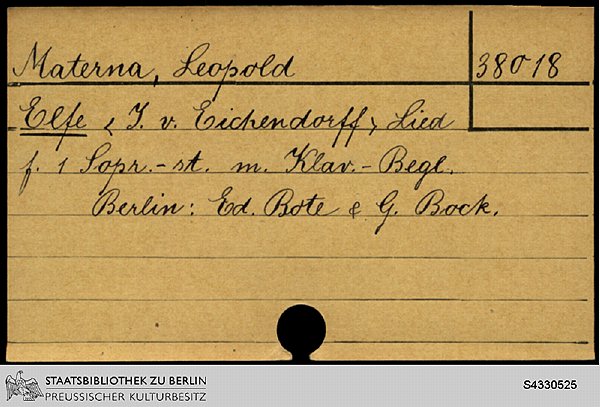 Materna, Leopold
38018
Elfe <J. v. Eichendorff> Lied
f. 1 Sopr.-st. m. Klav.-Begl.
Berlin: Ed. Bote & G. Bock.
STAATSBIBLIOTHEK ZU BERLIN
PREUSSISCHER KULTURBESITZ
S4330525